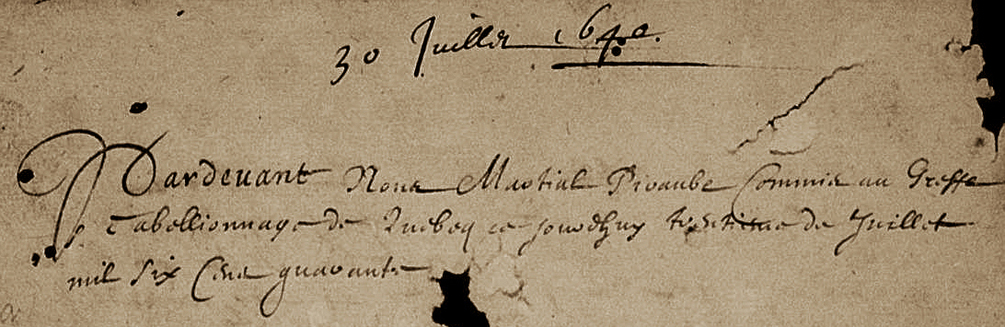 30 Juillet 1640.
Pardevant Nous Martial Piraube Commis au Greffe
& Tabellionnage de Quebecq ce jourdhuy trentieme de Juillet
mil six Cens quarante